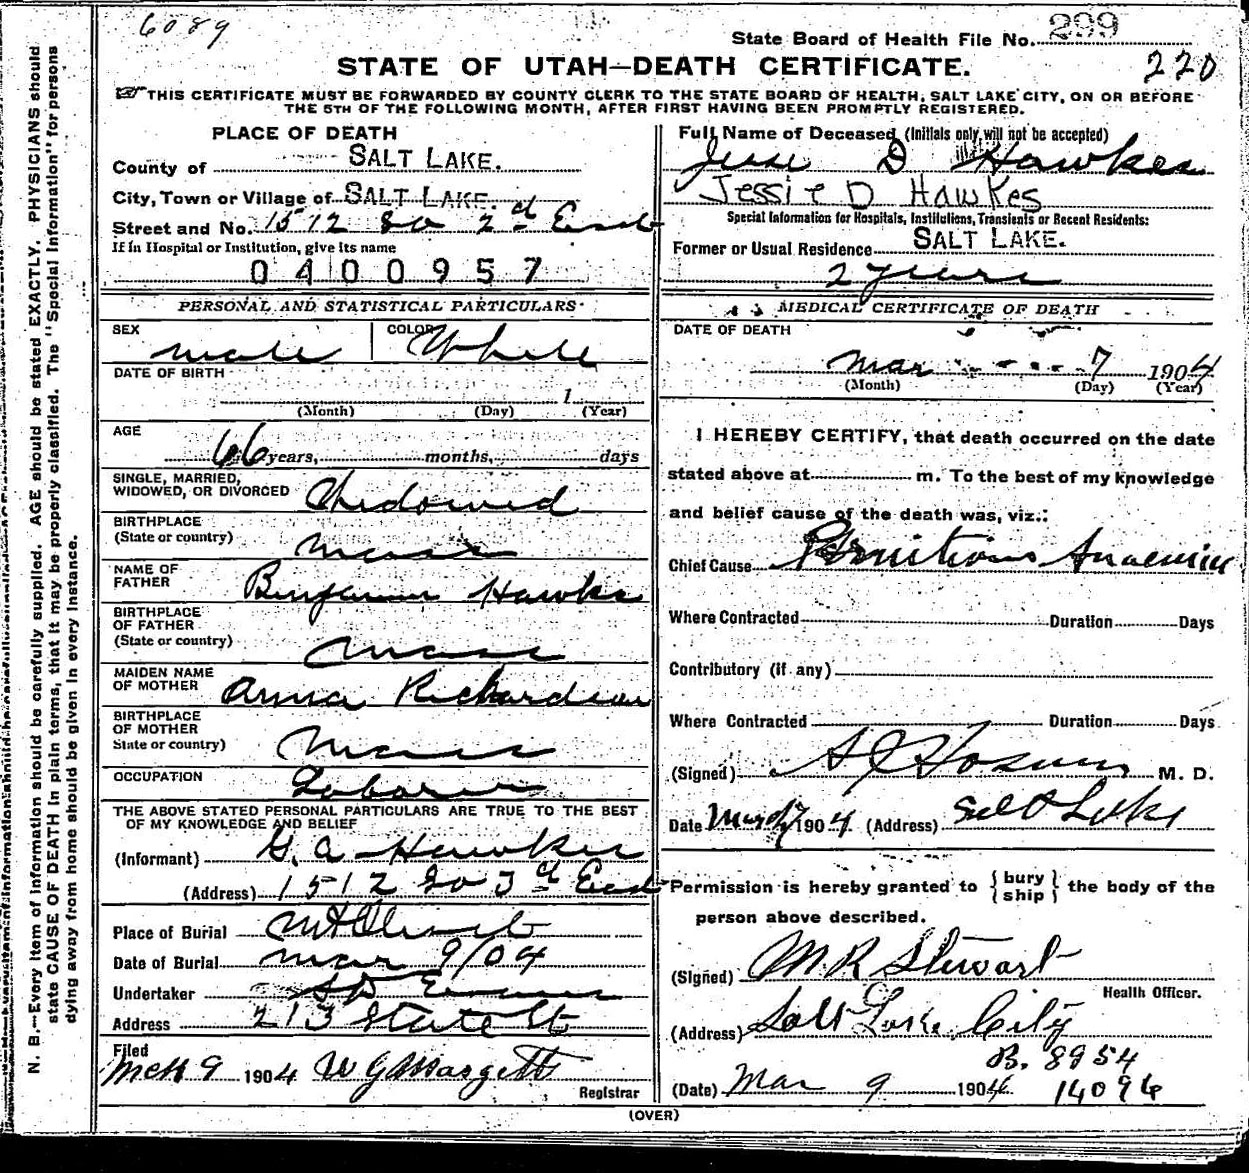 6089
State Board of Health File No. 299
STATE OF UTAH—DEATH CERTIFICATE.
220
THIS CERTIFICATE MUST BE FORWARDED BY COUNTY CLERK TO THE STATE BOARD OF HEALTH, SALT LAKE CITY, ON OR BEFORE
THE 5TH OF THE FOLLOWING MONTH, AFTER FIRST HAVING BEEN PROMPTLY REGISTERED.
PLACE OF DEATH
County of SALT LAKE.
City, Town or Village of SALT LAKE.
Street and No. 1512 So 2d East
If in Hospital or Institution, give its name
0400957
PERSONAL AND STATISTICAL PARTICULARS
SEX male COLOR White
DATE OF BIRTH
1
(Month) (Day) (Year)
AGE
66 years, months, days
SINGLE, MARRIED,
WIDOWED, OR DIVORCED Widowed
BIRTHPLACE
(State or country) Mass
NAME OF
FATHER Benjamin Hawkes
BIRTHPLACE
OF FATHER
(State or country) Mass
MAIDEN NAME
OF MOTHER Anna Richardson
BIRTHPLACE
OF MOTHER
State or country) Mass
OCCUPATION Laborer
THE ABOVE STATED PERSONAL PARTICULARS ARE TRUE TO THE BEST
OF MY KNOWLEDGE AND BELIEF
(Informant) G. A. Hawkes
(Address) 1512 So 3d East
Place of Burial Mt Olivet
Date of Burial Mar 9/04
Undertaker S D Evans
Address 213 State St
Filed
Mch 9 1904 W G Margetts
Registrar
Full Name of Deceased (Initials only will not be accepted)
Jesse D Hawkes
Jessie D Hawkes
Special Information for Hospitals, Institutions, Transients or Recent Residents:
Former or Usual Residence SALT LAKE.
2 years
MEDICAL CERTIFICATE OF DEATH
DATE OF DEATH
Mar 7 1904
(Month) (Day) (Year)
I HEREBY CERTIFY, that death occurred on the date
stated above at m. To the best of my knowledge
and belief cause of the death was, viz.:
Chief Cause Pernitious Anaemia
Where Contracted Duration Days
Contributory (if any)
Where Contracted Duration Days
(Signed) M. D.
Date March 7 1904 (Address) Salt Lake
Permission is hereby granted to {bury
ship} the body of the
person above described.
(Signed) M R Stewart
Health Officer.
(Address) Salt Lake City
B. 8954
(Date) Mar 9 1904 14096
(OVER)
N. B.—Every item of information should be carefully supplied. AGE should be stated EXACTLY. PHYSICIANS should
state CAUSE OF DEATH in plain terms, that it may be properly classified. The "Special Information" for persons
dying away from home should be given in every instance.